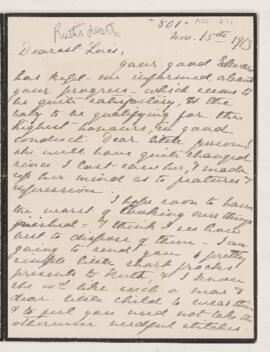 Ruth's death
- 801 -
Nov. 15th 1913
Dearest Lois,
Your good Edward
has kept me informed about
your progress - which seems to
be quite satisfactory, & the
baby to be qualifying for the
highest honours, in good
conduct. Dear little person!
she will have quite changed
since I last saw her, & made
up her mind as to features &
expression.
I hope soon to have
the worst of looking over things
finished - & think I see how
best to dispose of them - I am
going to send you 2 pretty
simple little frocks
presents to Ruth, & I know
she wd. like such a
dear little child to wear them
& to put you need not take the
otherwise needful stitches -